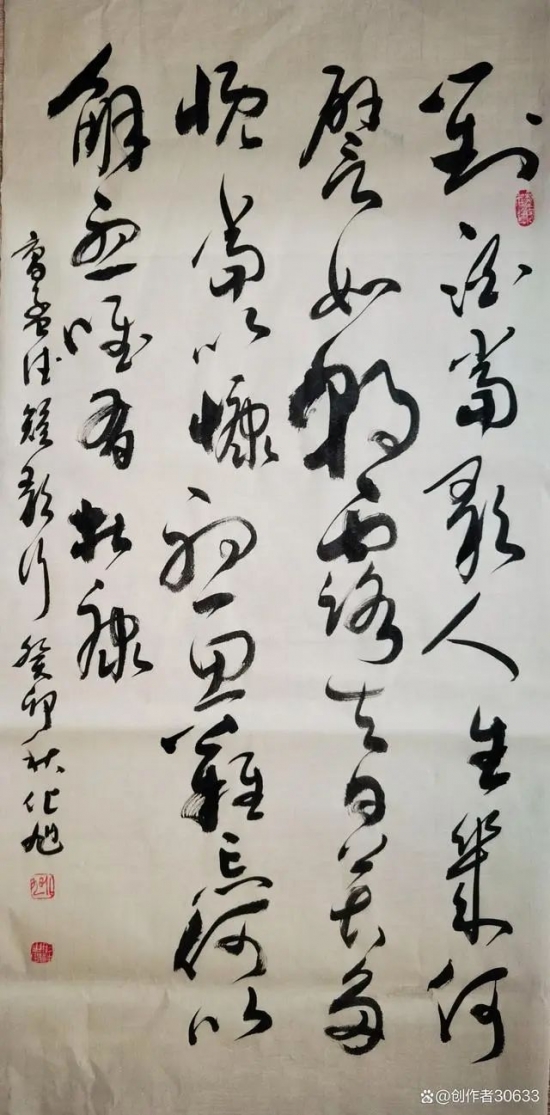 對酒當歌人生幾何
譬如朝露去日苦多
慨當以慷思難忘何以
解憂唯有杜康
曹孟德短歌行 癸卯秋化旭
@创作者30633